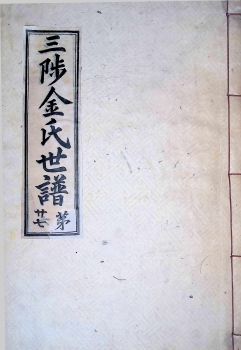 三陟金氏世譜
第廿七